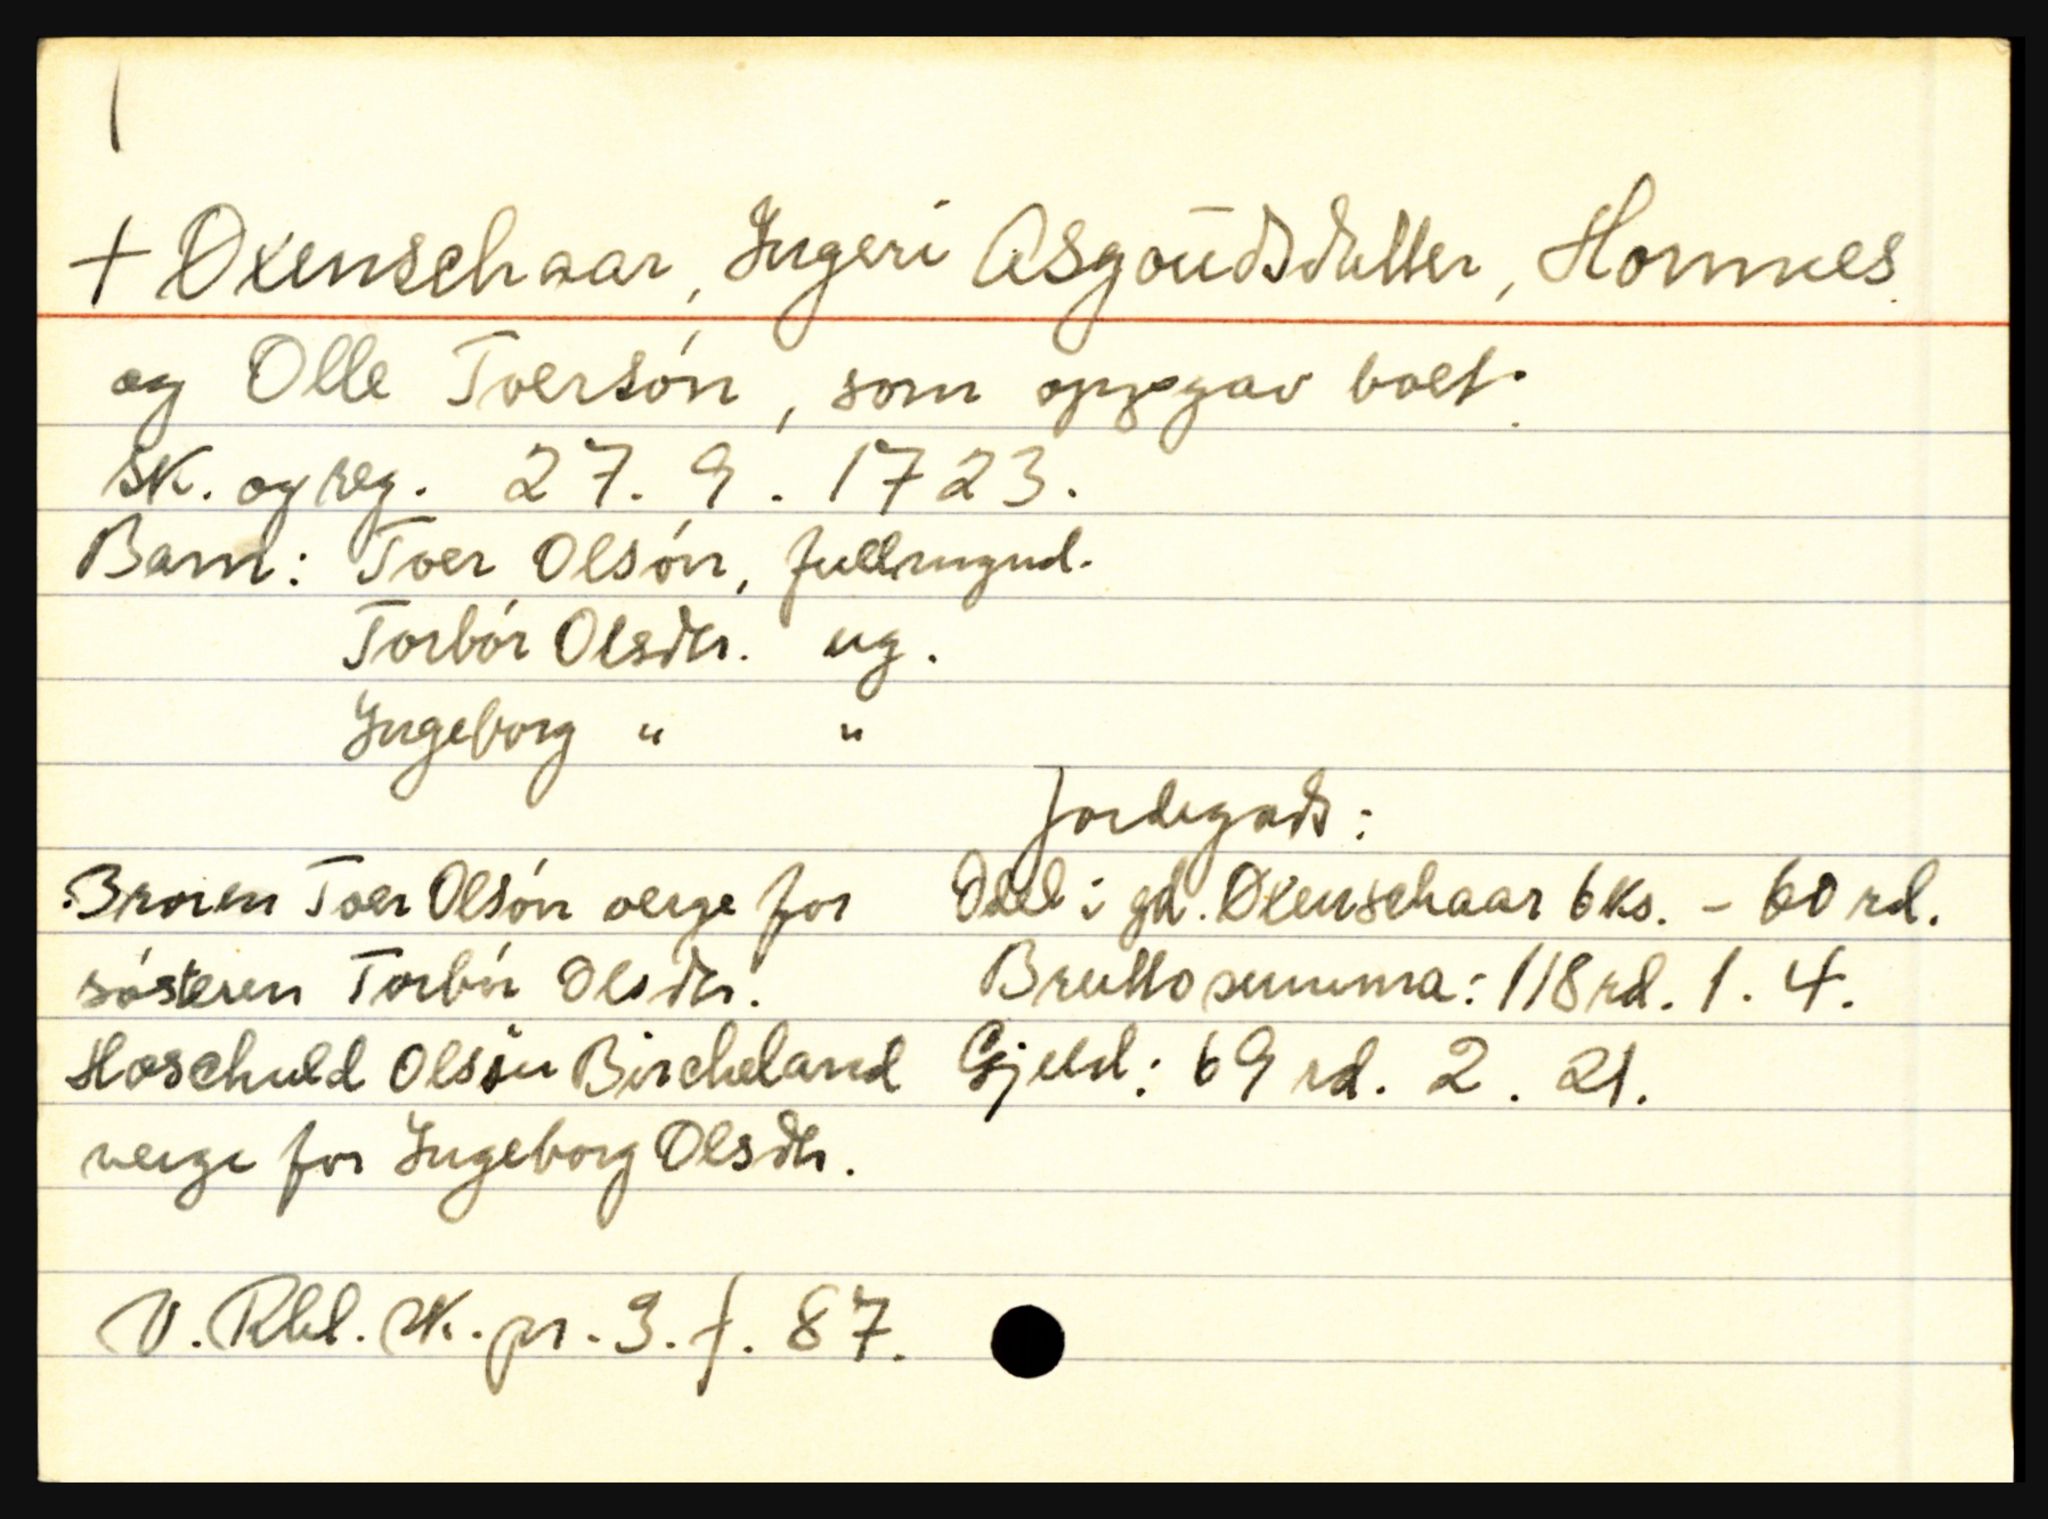 + Oxenschaar, Ingeri Asgoūdsdatter, Homnes
og Olle Toersón, som oppgav boet.
Sk. og reg. 27. 9. 1723.
Barn: Toer Olsón, fullmynd.
Torbór Olsdtr. ug.
Ingeborg " "
Jordegods:
Broren Toer Olsón verge for
sósteren Torbór Olsdtr.
Hoschuld Olsón Bircheland
verge for Ingeborg Olsdtr.
Odel i gd. Oxenschaar 6 ks. - 60 rd.
Bruttosumma: 118 rd. 1. 4.
Gjeld: 69 rd. 2. 21.
V. Rbd. sk. pr. 3. f. 87.